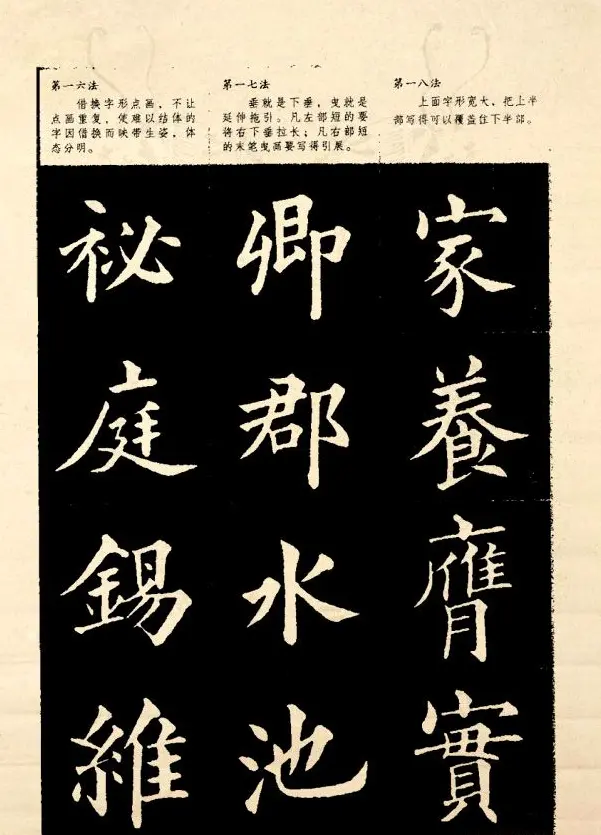 第一六法
借换字形点画，不让
点画重复，使难以结体的
字因借换而映带生姿，体
态分明。
第一七法
垂就是下垂，曳就是
延伸拖引。凡左部短的要
将右下垂拉长；凡右部短
的末笔曳画要写得引展。
第一八法
上面字形宽大，把上半
部写得可以覆盖住下半部。
祕 卿 家
庭 郡 養
錫 水 膺
維 池 實